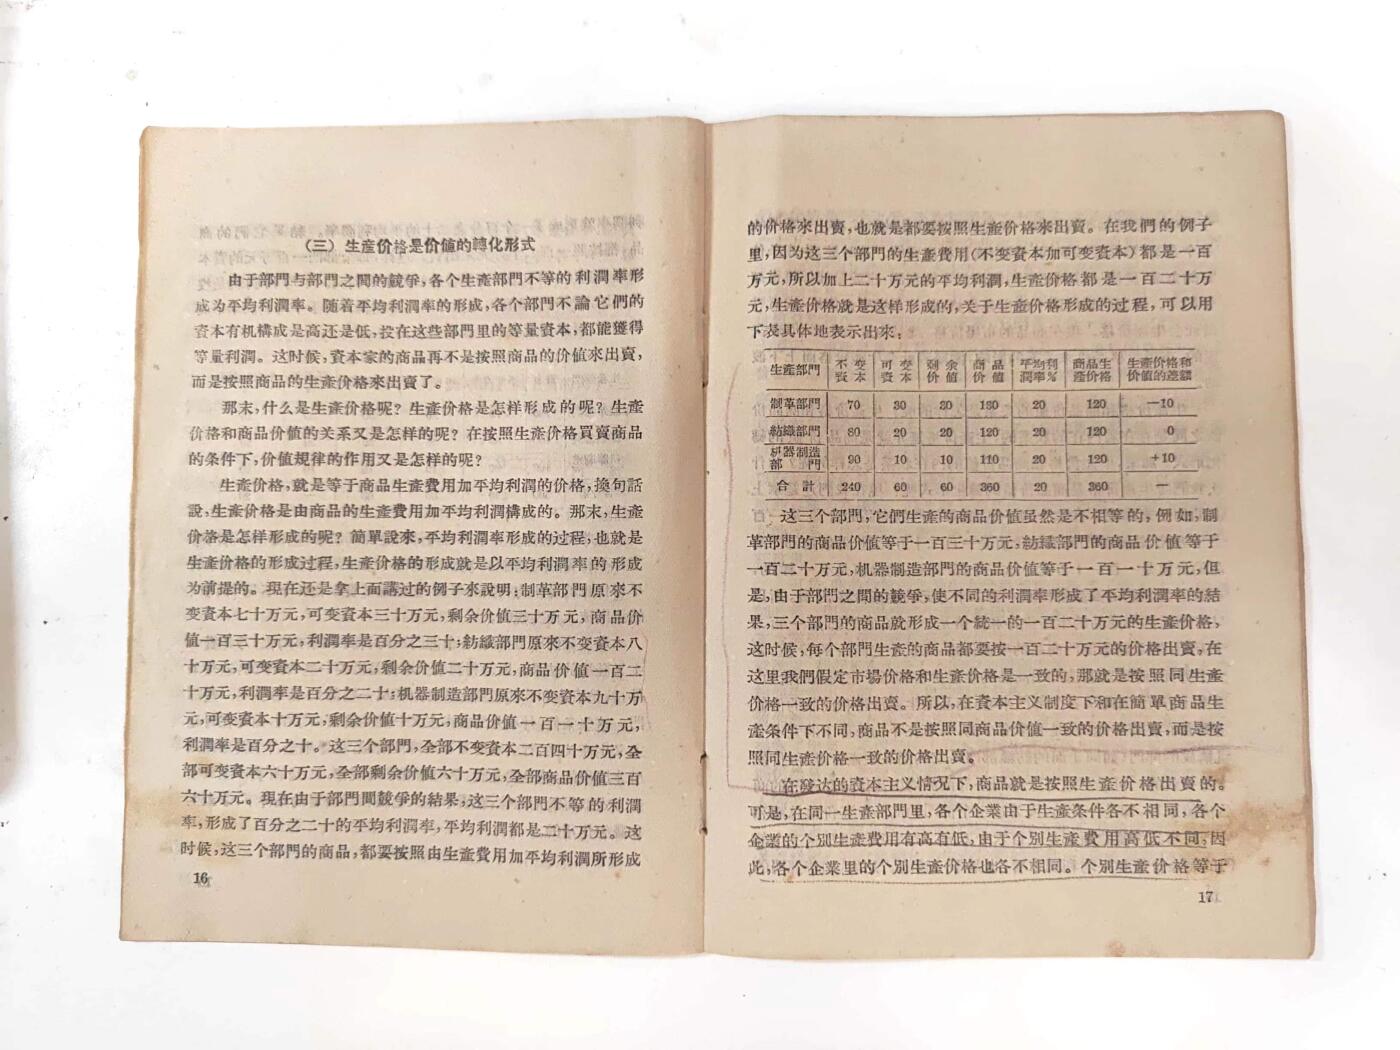 (三) 生産价格是价値的轉化形式
由于部門与部門之間的競爭，各个生產部門不等的利潤率形
成为平均利潤率。随着平均利潤率的形成，各个部門不論它們的
資本有机構成是高还是低，投在这些部門里的等量資本，都能獲得
等量利潤。这时候，資本家的商品再不是按照商品的价値來出賣，
而是按照商品的生產价格來出賣了。
那末，什么是生產价格呢？生產价格是怎样形成的呢？生產
价格和商品价値的关系又是怎样的呢？在按照生產价格買賣商品
的条件下，价値規律的作用又是怎样的呢？
生產价格，就是等于商品生產費用加平均利潤的价格，換句話
說，生產价格是由商品的生產費用加平均利潤構成的。那末，生產
价格是怎样形成的呢？簡單說來，平均利潤率形成的过程，也就是
生產价格的形成过程，生產价格的形成就是以平均利潤率的形成
为前提的。現在还是拿上面講过的例子來說明：制革部門原來不
变資本七十万元，可变資本三十万元，剩余价値三十万元，商品价
値一百三十万元，利潤率是百分之三十；紡織部門原來不变資本八
十万元，可变資本二十万元，剩余价値二十万元，商品价値一百二
十万元，利潤率是百分之二十；机器制造部門原來不变資本九十万
元，可变資本十万元，剩余价値十万元，商品价値一百一十万元，
利潤率是百分之十。这三个部門，全部不变資本二百四十万元，全
部可变資本六十万元，全部剩余价値六十万元，全部商品价値三百
六十万元。現在由于部門間競爭的結果，这三个部門不等的利潤
率，形成了百分之二十的平均利潤率，平均利潤都是二十万元。这
时候，这三个部門的商品，都要按照由生產費用加平均利潤所形成
16
的价格來出賣，也就是都要按照生產价格來出賣。在我們的例子
里，因为这三个部門的生產費用(不变資本加可变資本)都是一百
万元，所以加上二十万元的平均利潤，生產价格都是一百二十万
元，生產价格就是这样形成的，关于生產价格形成的过程，可以用
下表具体地表示出來：
生產部門 不变資本 可变資本 剩余价値 商品价値 平均利潤率% 商品生產价格 生產价格和价値的差額
制革部門 70 30 30 130 20 120 —10
紡織部門 80 20 20 120 20 120 0
机器制造部門 90 10 10 110 20 120 +10
合計 240 60 60 360 20 360 —
这三个部門，它們生產的商品价値虽然是不相等的，例如，制
革部門的商品价値等于一百三十万元，紡織部門的商品价値等于
一百二十万元，机器制造部門的商品价値等于一百一十万元，但
是，由于部門之間的競爭，使不同的利潤率形成了平均利潤率的結
果，三个部門的商品就形成一个統一的一百二十万元的生產价格，
这时候，每个部門生產的商品都要按一百二十万元的价格出賣，在
这里我們假定市場价格和生產价格是一致的，那就是按照同生產
价格一致的价格出賣。所以，在資本主义制度下和在簡單商品生
產条件下不同，商品不是按照同商品价値一致的价格出賣，而是按
照同生產价格一致的价格出賣。
在發达的資本主义情况下，商品就是按照生產价格出賣的。
可是，在同一生產部門里，各个企業由于生產条件各不相同，各个
企業的个別生產費用有高有低，由于个別生產費用高低不同，因
此，各个企業里的个別生產价格也各不相同。个別生產价格等于
17